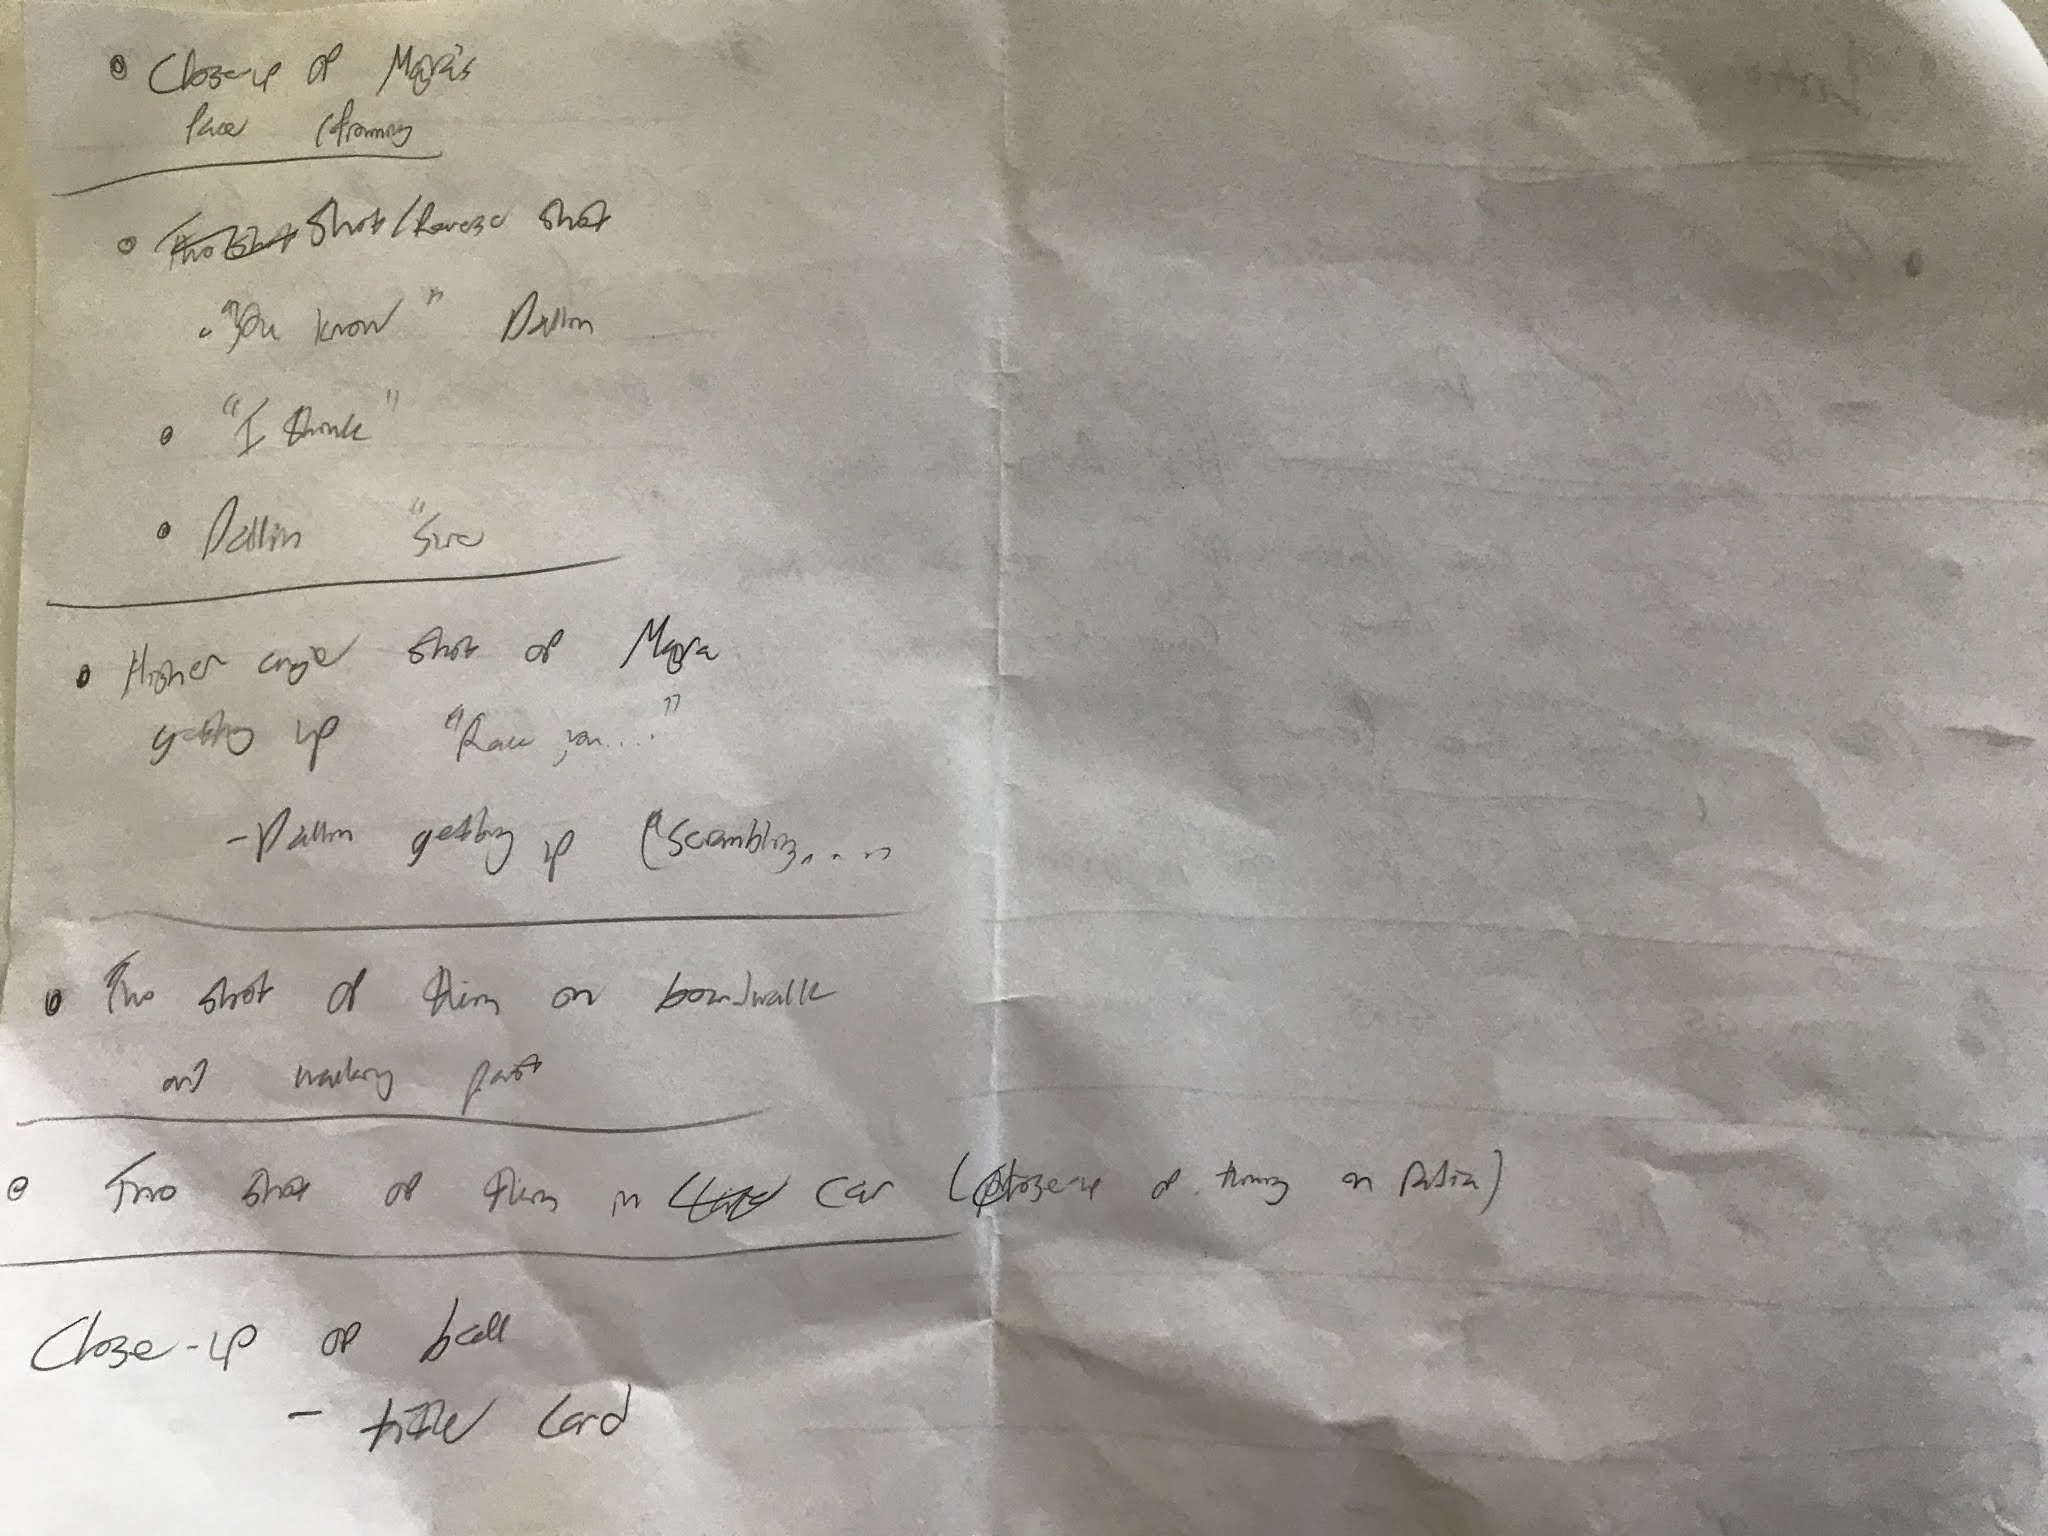 • Close-up of Mayra's
face (framing
• Two shot Shot/Reverse shot
• "You know" Dallin
• "I think"
• Dallin "Sure
• Higher angle shot of Mayra
getting up "Race you...."
- Dallin getting up ("Scrambling....
• Two shot of them on boardwalk
and walking past
• Two shot of them in car (close-up of turning on radio)
Close-up of ball
- title card